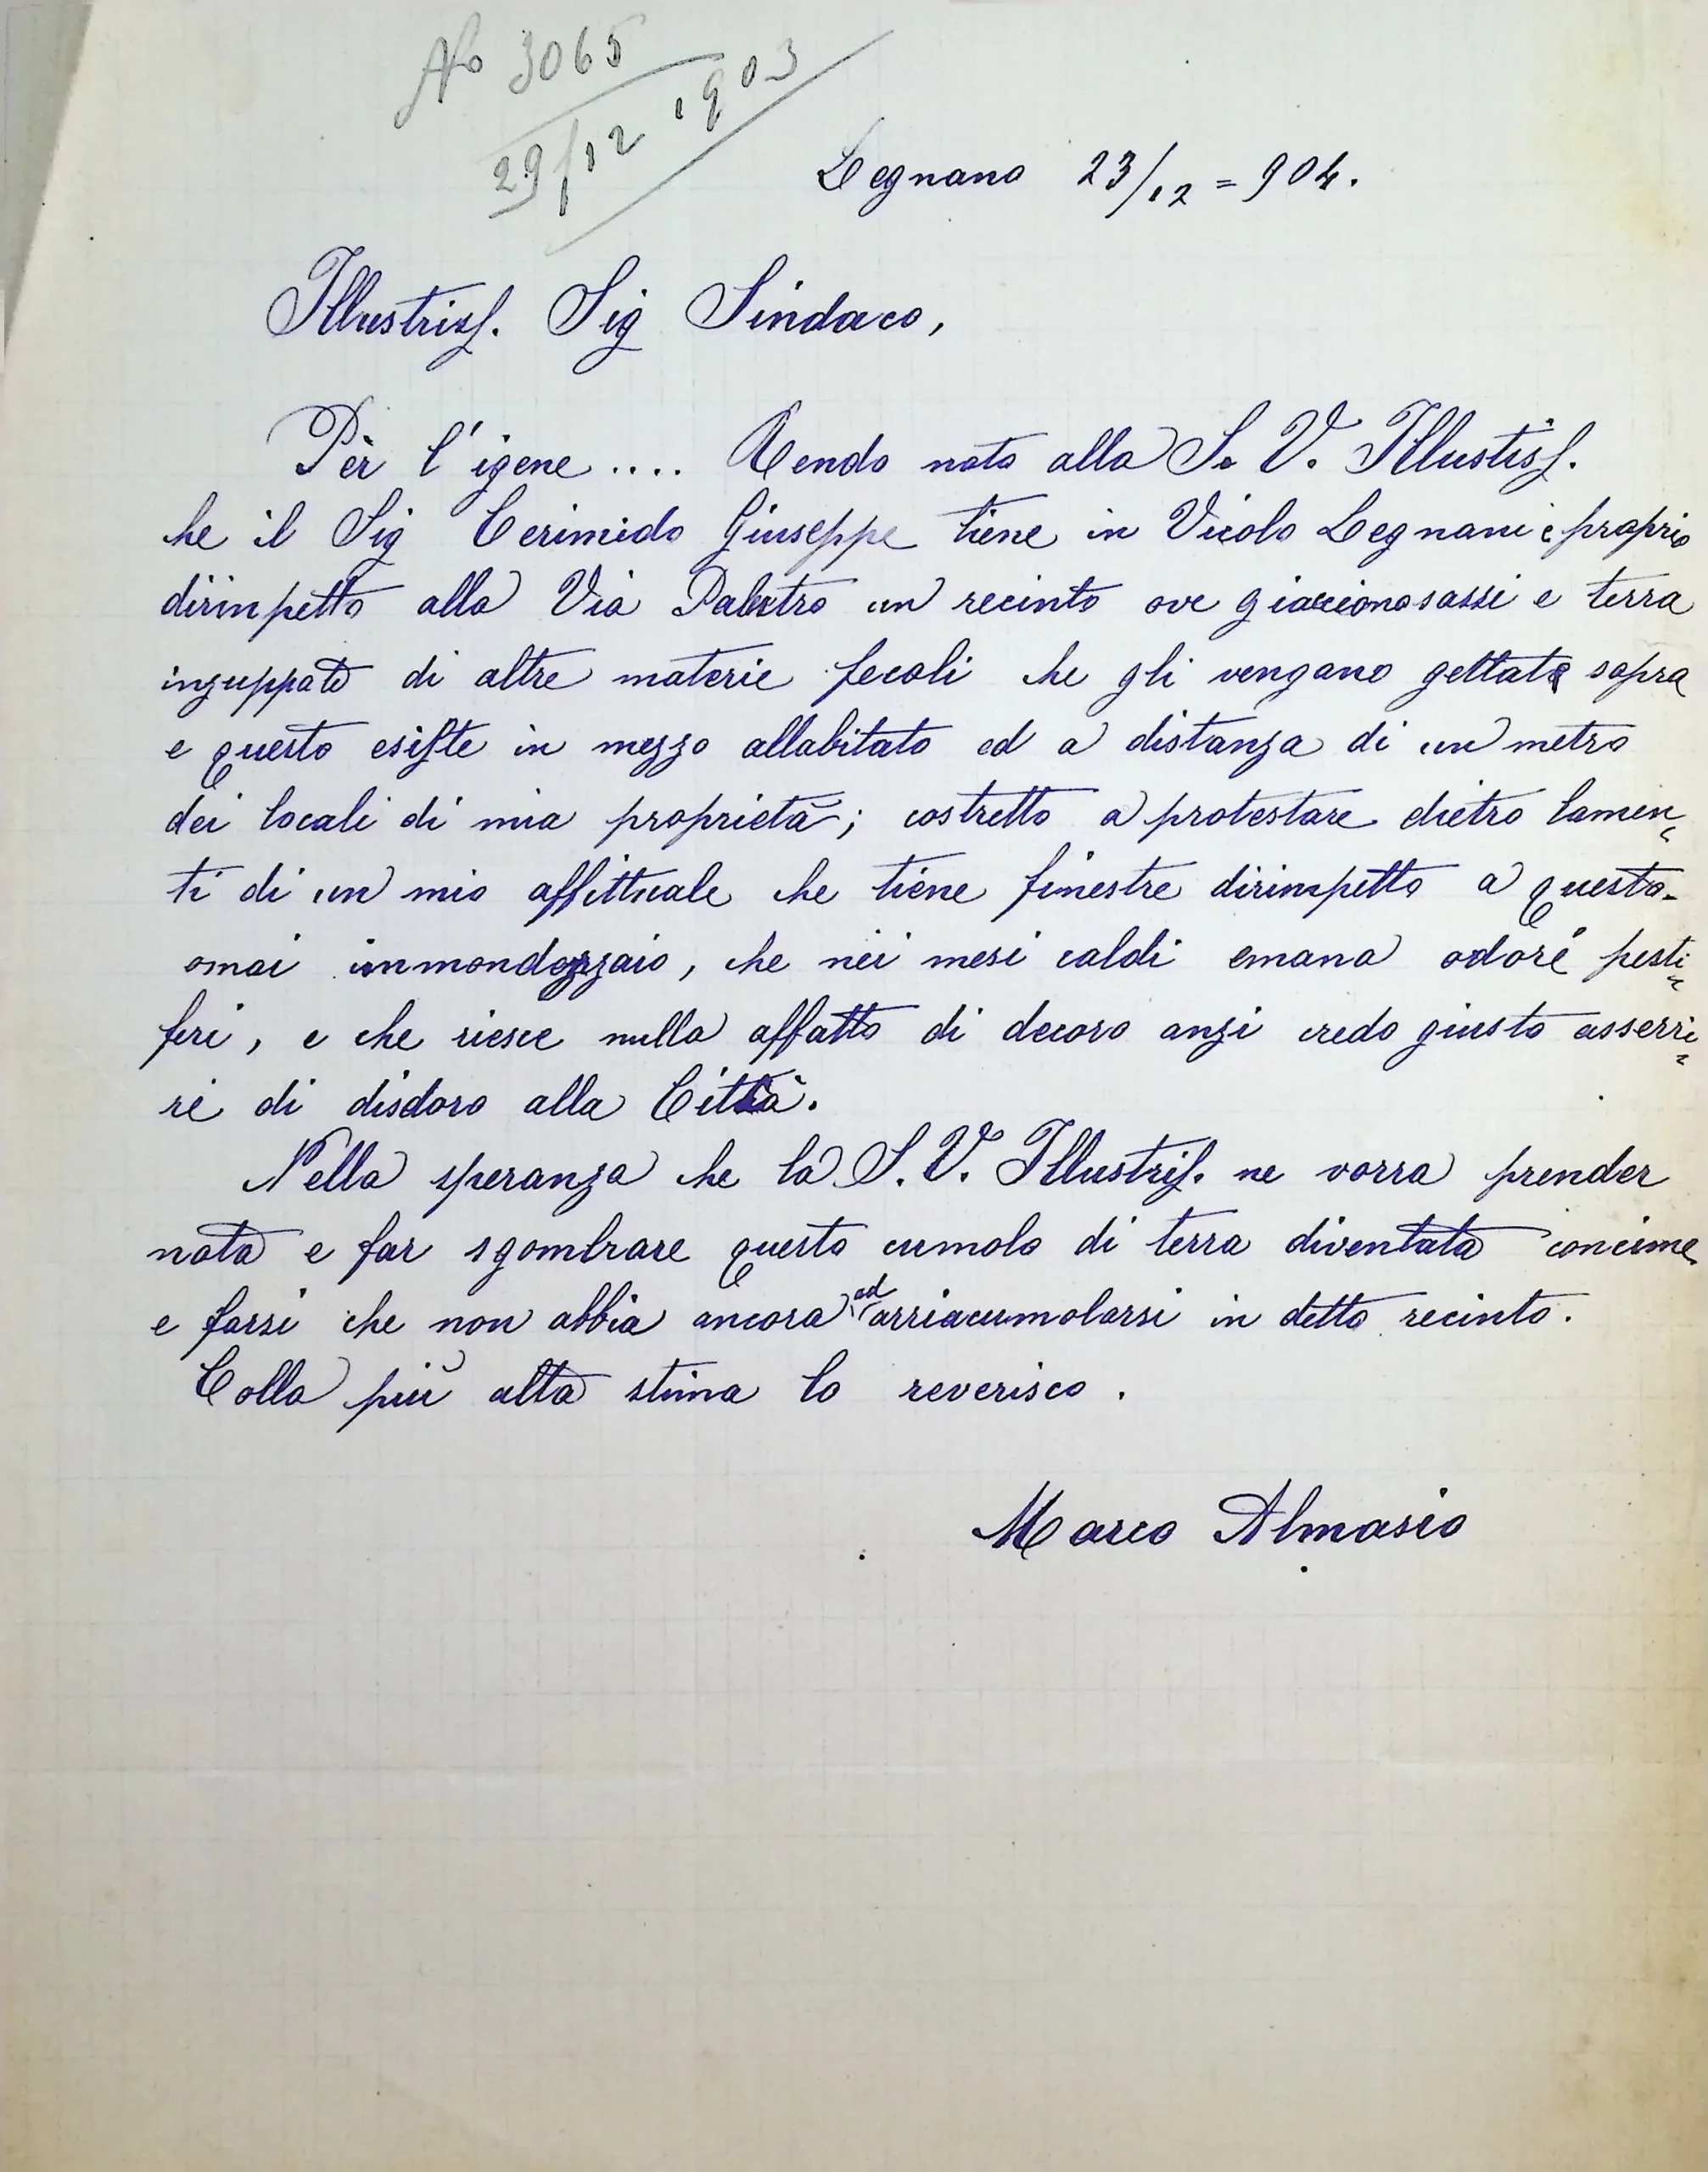 No 3065
29/12 1903
Legnano 23/12 = 904.
Illustriss. Sig Sindaco,
Per l'igene .... Rendo noto alla S. V. Illustiss.
che il Sig Cerimido Giuseppe tiene in Vicolo Legnani e proprio
dirimpetto alla Via Palestro un recinto ove giacciono sassi e terra
inzuppate di altre materie fecali che gli vengano gettate sopra
e questo esisste in mezzo allabitato ed a distanza di un metro
dei locali di mia proprietà; costretto a protestare dietro lamen=
ti di un mio affittuale che tiene finestre dirimpetto a questo
omai immondezzaio, che nei mesi caldi emana odori pesti=
feri, e che riesce nulla affatto di decoro anzi credo giusto asserri=
re di disdoro alla Città.
Nella speranza che la S. V. Illustriss. ne vorra prender
nota e far sgombrare questo cumolo di terra diventata concime
e farsi che non abbia ancora ad arriacumolarsi in detto recinto.
Colla più alta stima lo reverisco.
Marco Almasio